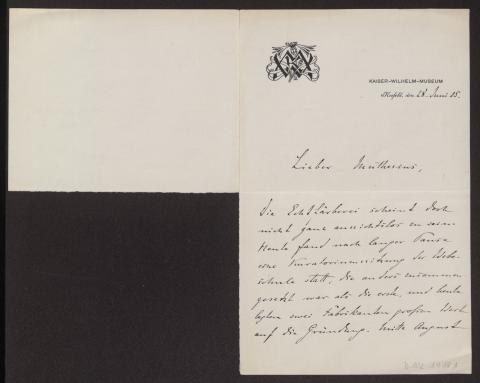 KAISER-WILHELM-MUSEUM
Krefeld, den 28. Juni 15.
Lieber Muthesius,
Die Echtfärberei scheint doch
nicht ganz aussichtslos zu sein.
Heute fand nach langer Pause
eine Kuratoriumssitzung der Webe-
schule statt, die anders zusammen-
gesetzt war als die erste, und heute
legten zwei Fabrikanten großen Wert
auf die Gründung. Mitte August